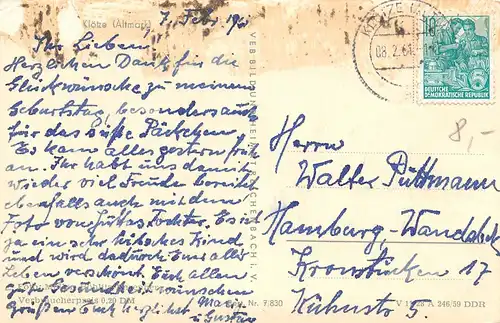 Klötze (Altmark)
7. Febr. 1961
Ihr Lieben.
Herzlichen Dank für die
Glückwünsche zu meinem
Geburtstag, besonders auch
für das süße Päckchen.
Es kam alles gestern früh
an. Ihr habt uns damit
wieder viel Freude bereitet
ebenfalls auch mit dem
Foto von Juttas Tochter. Es ist
ja ein sehr hübsches Kind
und wird dadurch Euer aller
Leben verschönt. Euch allen
gute Gesundheit wünschen
grüßen Euch herzlichst
u. Gustav
Verbraucherpreis 0,20 DM
Nr. 7/830
V 11 28 A 246/59 DDR
VEB BILD
REICHENBACH I. V.
KLÖTZE
08.2.61
10
DEUTSCHE
DEMOKRATISCHE REPUBLIK
8,-
Herrn
Walter Püttmann
Hamburg-Wandsbek
Kühnstr. 5